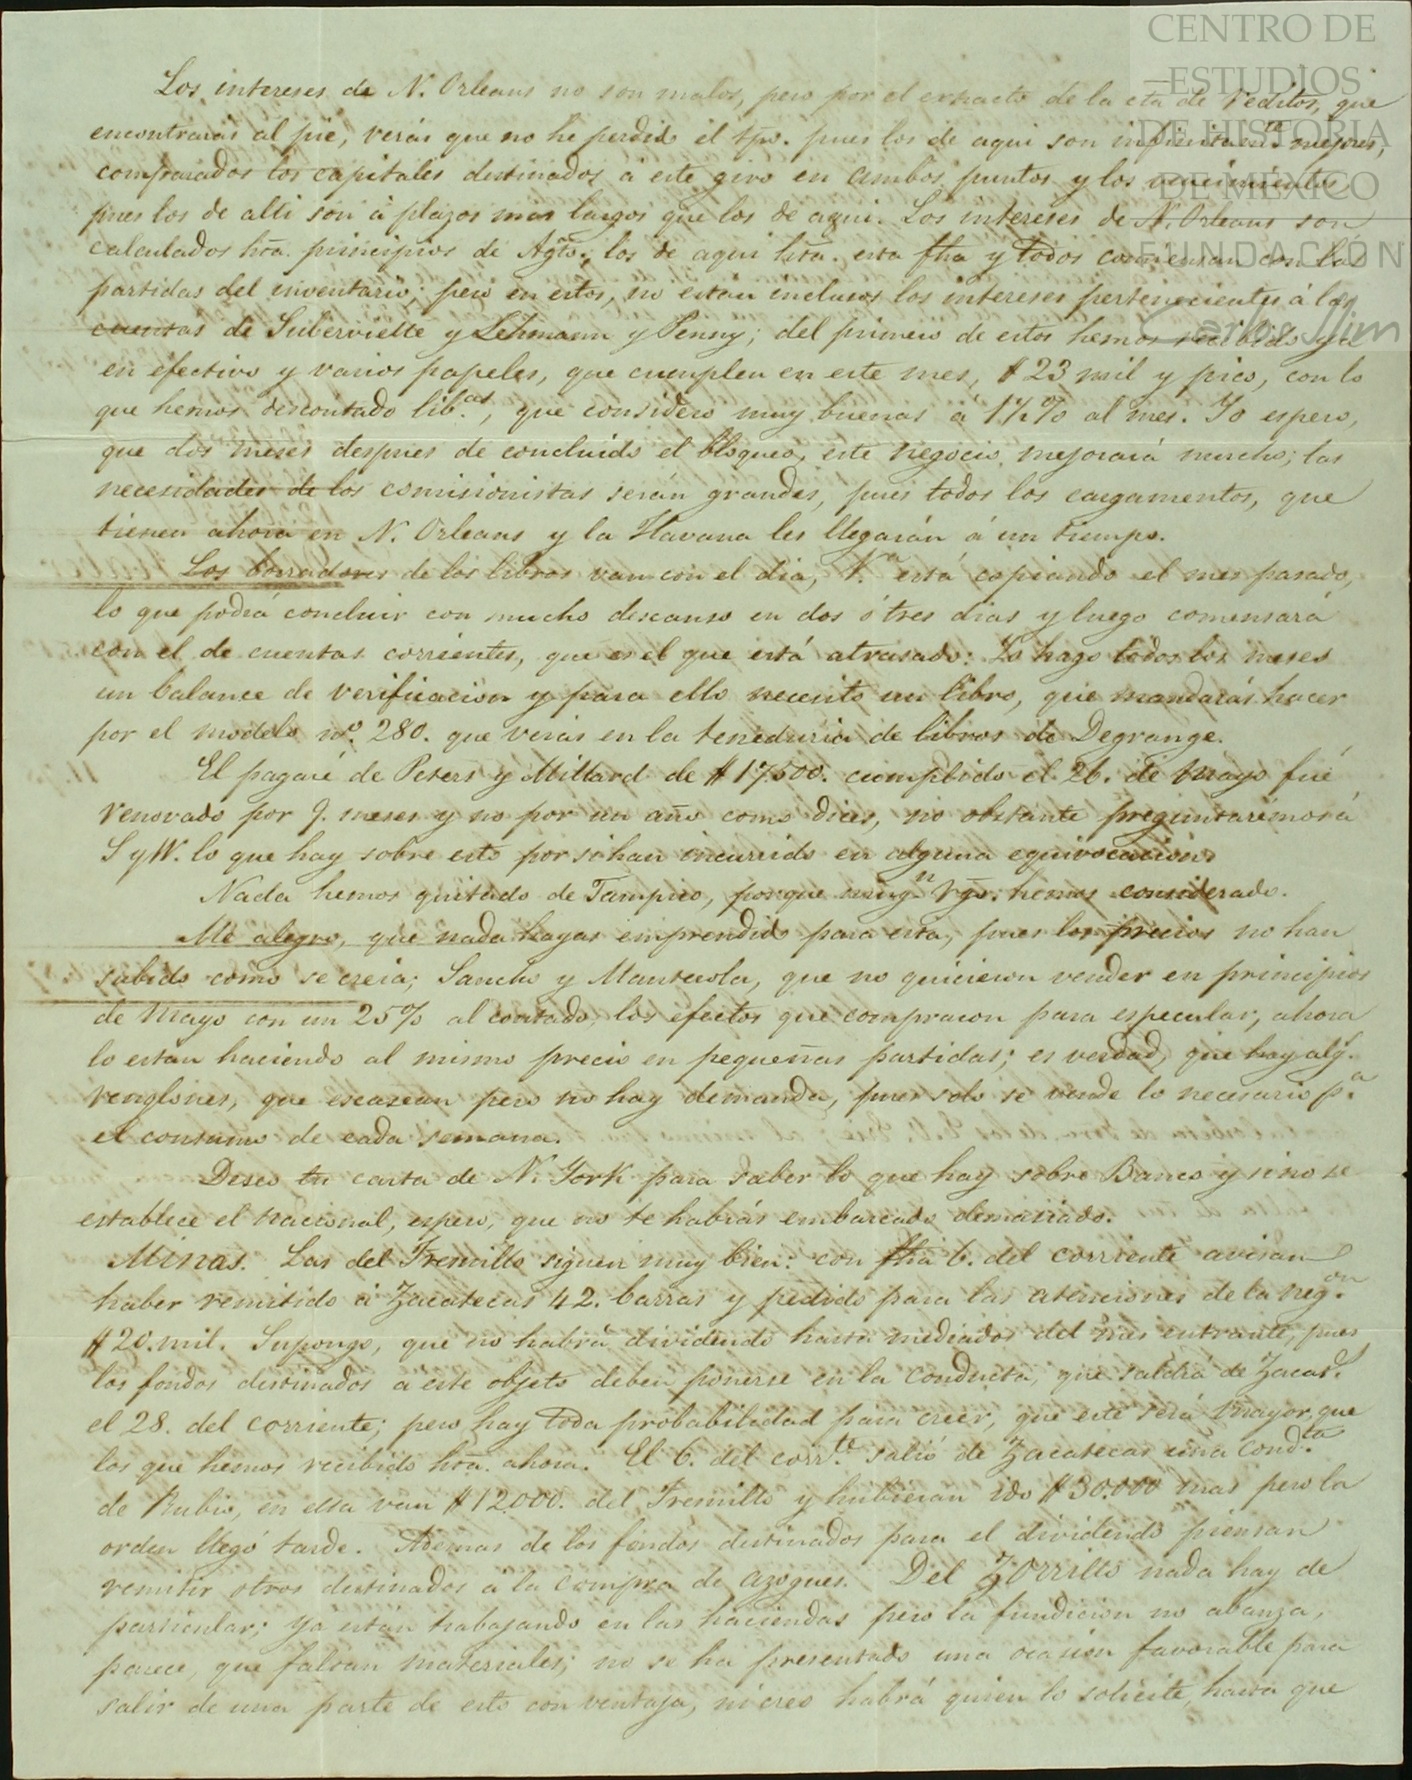 CENTRO DE
ESTUDIOS
DE HISTORIA
DE MÉXICO
FUNDACIÓN
Carlos Slim
Los intereses de N. Orleans no son malos, pero por el extracto de la cta de reditos, que
encontrarás al pie, verás que no he perdido el tpo. pues los de aqui son infinitamte mejores,
comparados los capitales destinados á este giro en ambos puntos y los vencimientos
pues los de alli son á plazos mas largos que los de aqui. Los intereses de N. Orleans son
calculados hta. principios de Agto., los de aqui hta. esta fha y todos comiensan con las
partidas del inventario; pero en estos, no estan inclusos los intereses pertenecientes á las
cuentas de Subervielle y Lehmann y Penny; del primero de estos hemos recibido ya
en efectivo y varios papeles, que cumplen en este mes, $23 mil y pico, con lo
que hemos descontado lib.as, que considero muy buenas á 1½% al mes. Yo espero,
que dos meses despues de concluido el bloqueo, este negocio mejorará mucho; las
necesidades de los comisionistas serán grandes, pues todos los cargamentos, que
tienen ahora en N. Orleans y la Havana les llegarán á un tiempo.
Los borradores de los libros van con el dia, está copiando el mes pasado,
lo que podrá concluir con mucho descanso en dos ó tres dias y luego comensará
con el de cuentas corrientes, que es el que está atrasado: Yo hago todos los meses
un balance de verificacion y para ello necesito un libro, que mandarás hacer
por el modelo no. 280. que verás en la teneduria de libros de Degrange.
El pagaré de Peters y Millard de $17.500. cumplido el 26. de Mayo fué
renovado por 9. meses y no por un año como dices, no obstante preguntarémos á
S y W. lo que hay sobre esto por si han incurrido en alguna equivocacion.
Nada hemos quitado de Tampico, porque ningn. hemos considerado.
Me alegro, que nada hayas emprendido para esta, pues los precios no han
subido como se creia; Sancho y Manterola, que no quicieron vender en principios
de Mayo con un 25% al contado, los efectos que compraron para especular, ahora
lo estan haciendo al mismo precio en pequeñas partidas; es verdad, que hay alg.
renglones, que escasean pero no hay demanda, pues solo se vende lo necesario p.a
el consumo de cada semana.
Deseo tu carta de N. York para saber lo que hay sobre Banco y si no se
establece el nacional, espero, que no te habrás embarcado demasiado.
Minas. Las del Fresnillo siguen muy bien: con fha 6. del corriente avisan
haber remitido á Zacatecas 42. barras y pedido para las atenciones de la neg.on
$20. mil. Supongo, que no habrá dividendo hasta mediados del mes entrante, pues
los fondos destinados á este objeto deben ponerse en la conducta, que saldrá de Zacats.
el 28. del corriente; pero hay toda probabilidad para creer, que este será mayor, que
los que hemos recibido hta. ahora. El 6. del corr.te salió de Zacatecas una cond.ta
de Rubio, en ella van $12000. del Fresnillo y hubieran ido $30.000 mas pero la
orden llegó tarde. Ademas de los fondos destinados para el dividendo piensan
remitir otros destinados á la compra de azogues. Del Zorrillo nada hay de
particular; ya están trabajando en las haciendas pero la fundicion no abanza,
parece, que faltan materiales; no se ha presentado una ocasion favorable para
salir de una parte de esto con ventaja, ni creo habrá quien lo solicite, hasta que